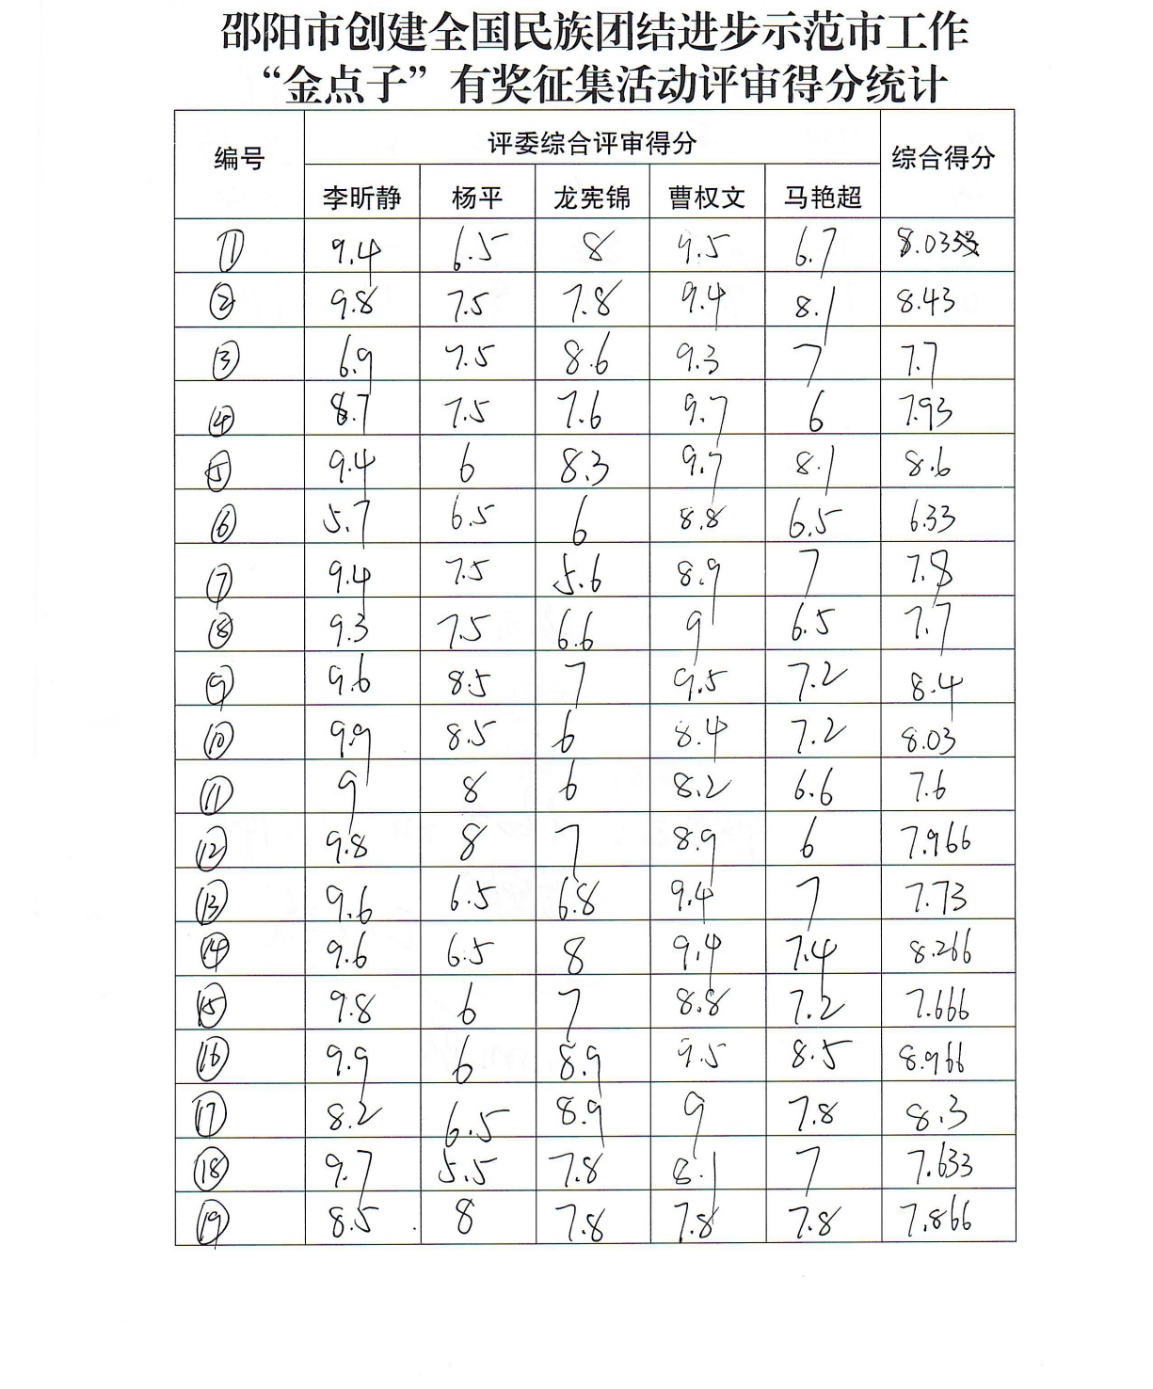 邵阳市创建全国民族团结进步示范市工作
“金点子”有奖征集活动评审得分统计
编号 评委综合评审得分 综合得分
李昕静 杨平 龙宪锦 曹权文 马艳超
① 9.4 6.5 8 9.5 6.7 8.033
② 9.8 7.5 7.8 9.4 8.1 8.43
③ 6.9 7.5 8.6 9.3 7 7.7
④ 8.7 7.5 7.6 9.7 6 7.93
⑤ 9.4 6 8.3 9.7 8.1 8.6
⑥ 5.7 6.5 6 8.8 6.5 6.33
⑦ 9.4 7.5 5.6 8.9 7 7.8
⑧ 9.3 7.5 6.6 9 6.5 7.7
⑨ 9.6 8.5 7 9.5 7.2 8.4
⑩ 9.9 8.5 6 8.4 7.2 8.03
⑪ 9 8 6 8.2 6.6 7.6
⑫ 9.8 8 7 8.9 6 7.966
⑬ 9.6 6.5 6.8 9.4 7 7.73
⑭ 9.6 6.5 8 9.4 7.4 8.266
⑮ 9.8 6 7 8.8 7.2 7.666
⑯ 9.9 6 8.9 9.5 8.5 8.966
⑰ 8.2 6.5 8.9 9 7.8 8.3
⑱ 9.7 5.5 7.8 8.1 7 7.633
⑲ 8.5 8 7.8 7.8 7.8 7.866